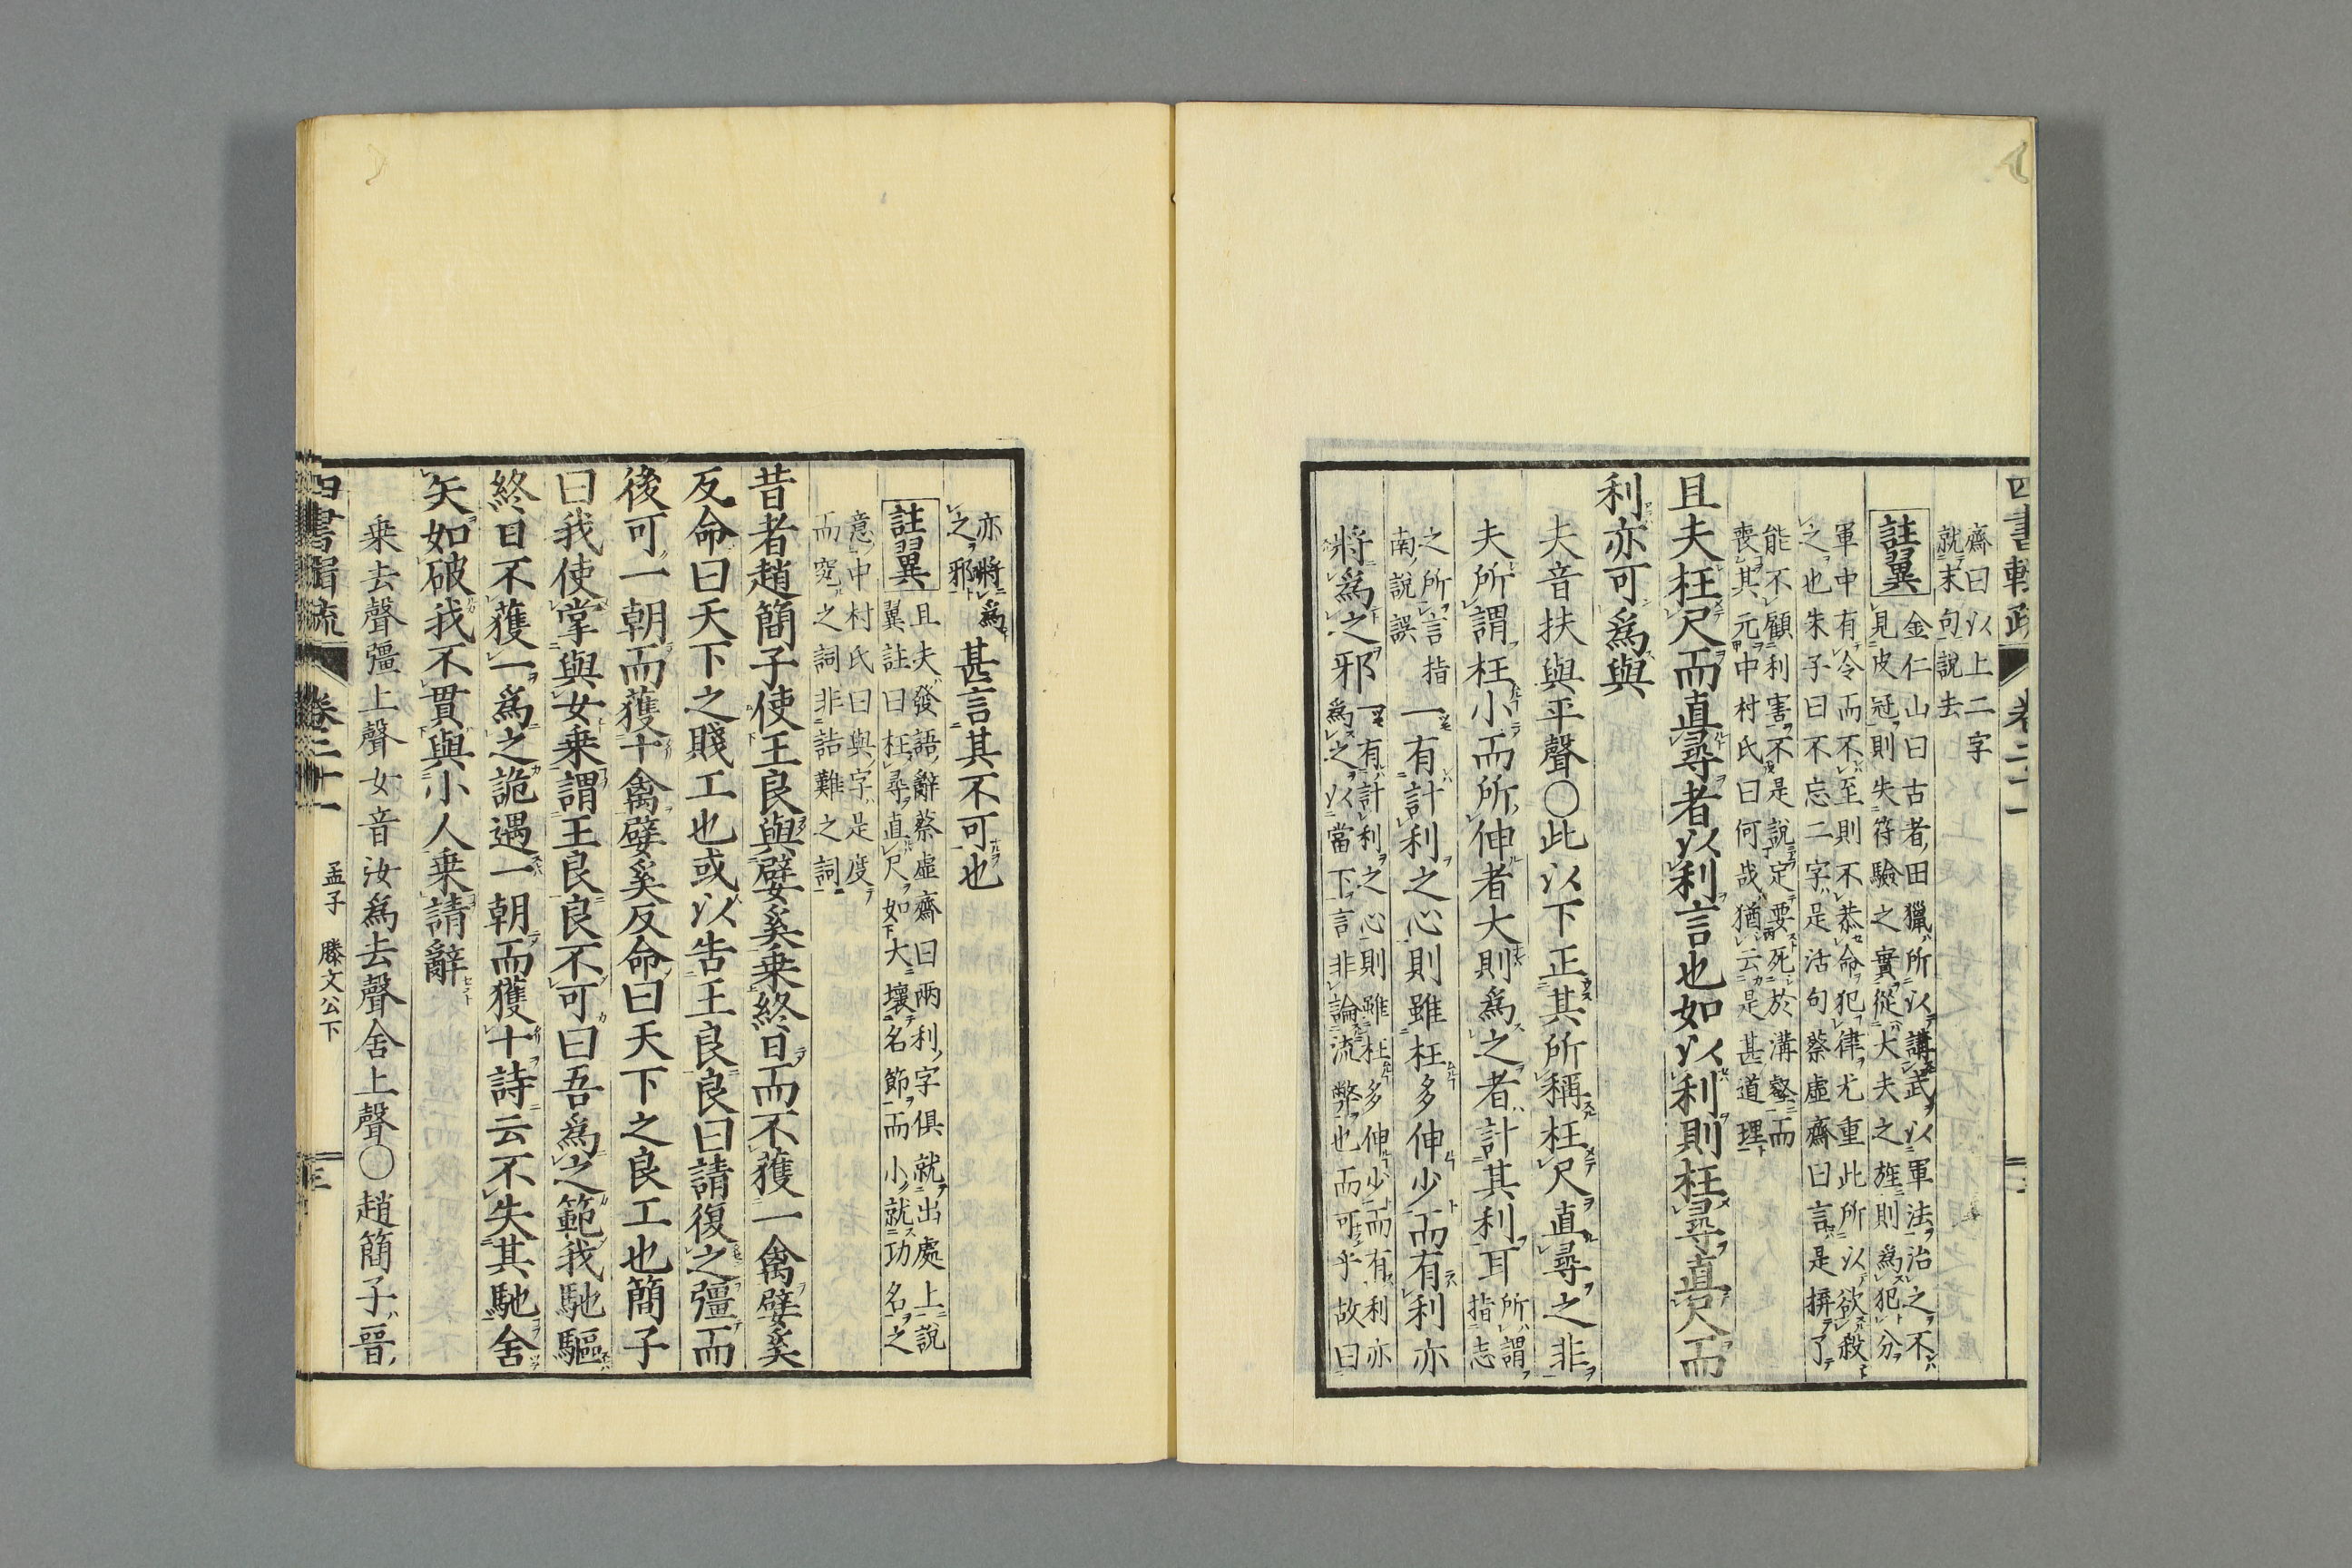 四書輯疏 卷二十一
齋曰以上二字
就末句說去
註翼
金仁山曰古者田獵所以講武以軍法治之不
見皮冠則失符驗之實從大夫之旌則爲犯分
軍中有令而不至則不恭命犯律尤重此所以欲殺
之也朱子曰不忘二字是活句蔡虛齋曰言是拚了
能不顧利害不是說定要死於溝壑而
喪其元中村氏曰何哉猶云是甚道理
且夫枉尺而直尋者以利言也如以利則枉尋直尺而
利亦可爲與
夫音扶與平聲○此以下正其所稱枉尺直尋之非
夫所謂枉小而所伸者大則爲之者計其利耳
所謂
指志
之所言指
南說誤
一有計利之心則雖枉多伸少而有利亦
將爲之邪
一有計利之心則雖枉多伸少而有利亦
爲之以當下言非論流弊也而可乎故曰
亦將爲
之邪
甚言其不可也
註翼
且夫發語辭蔡虛齋曰兩利字俱就出處上說
翼註曰枉尋直尺如大壞名節而小就功名之
意中村氏曰與字是度
而究之詞非詰難之詞
昔者趙簡子使王良與嬖奚乗終日而不獲一禽嬖奚
反命曰天下之賤工也或以告王良良曰請復之彊而
後可一朝而獲十禽嬖奚反命曰天下之良工也簡子
曰我使掌與女乗謂王良良不可曰吾爲之範我馳驅
終日不獲一爲之詭遇一朝而獲十詩云不失其馳舍
矢如破我不貫與小人乗請辭
乗去聲彊上聲女音汝爲去聲舍上聲○趙簡子晉
四書輯疏 卷二十一 孟子 滕文公下 三